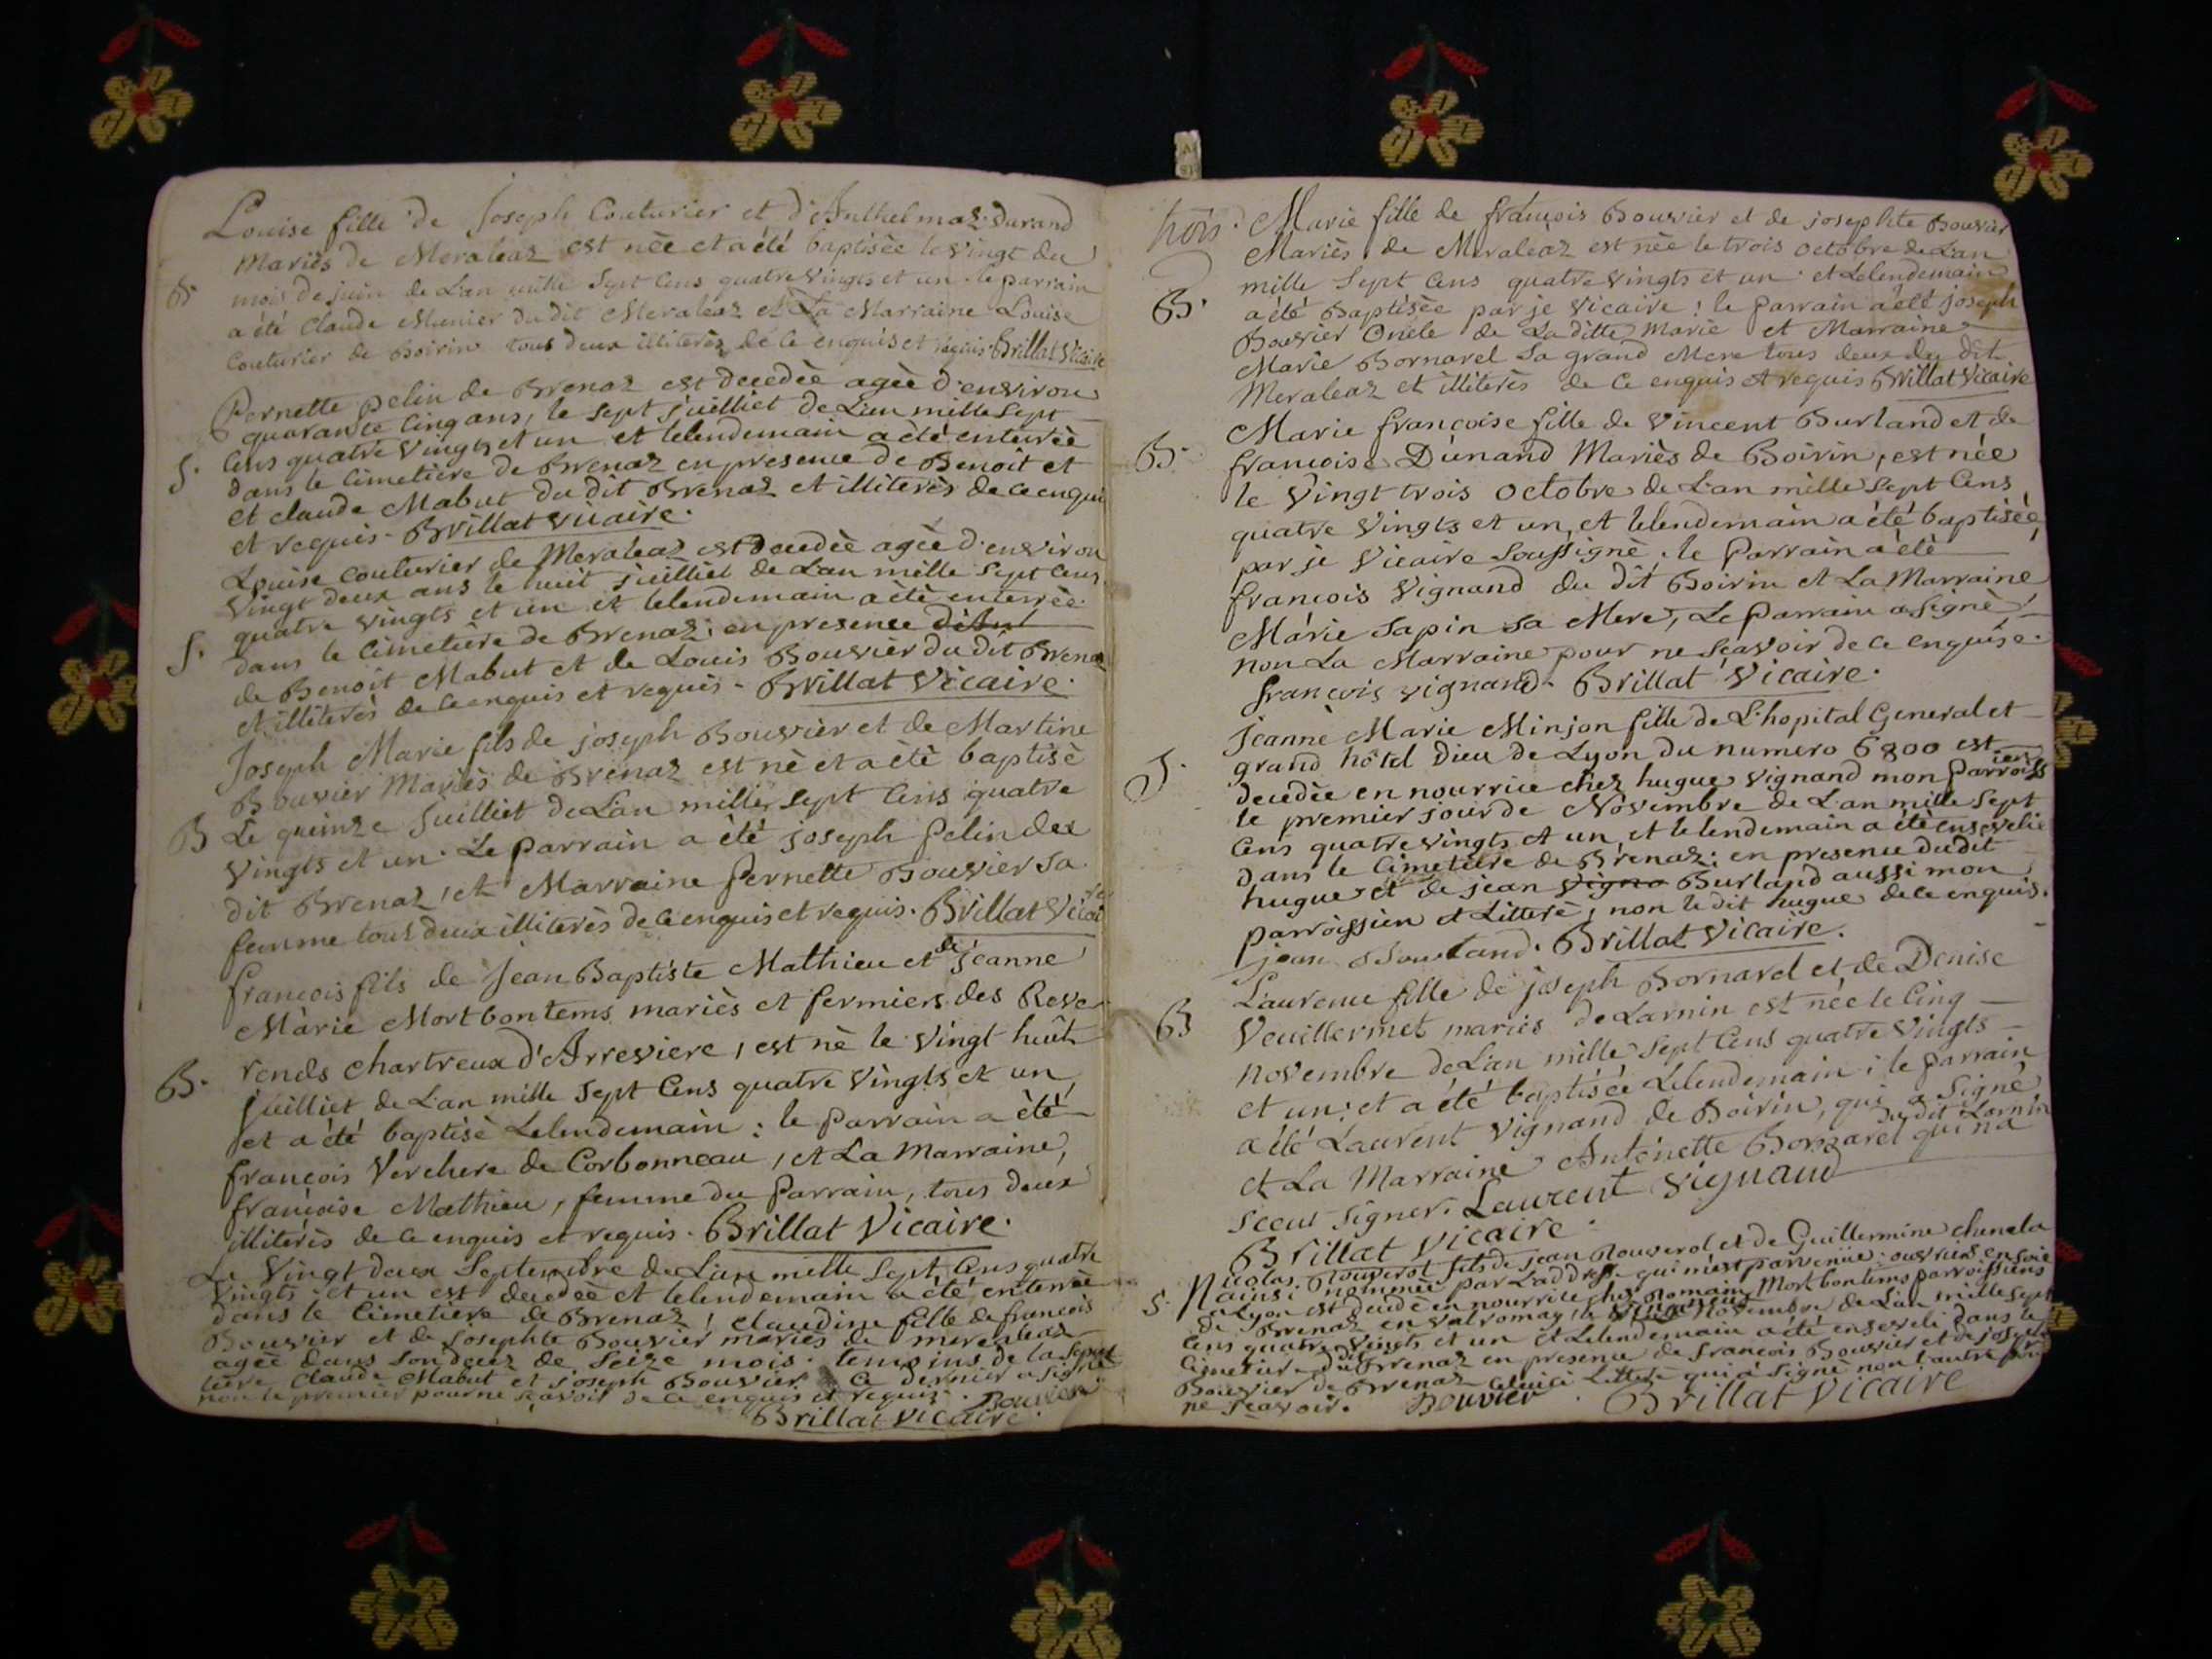 Louise fille de Joseph Couturier et d'Anthelmaz Durand
mariès de Meraleaz est nèe et a été baptisèe le vingt du
B. mois de juin de L'an mille Sept Cens quatre vingts et un. le parrain
a été Claude Munier du dit Meraleaz et La Marraine Louise
Couturier de Boirin tous deux illiterès de ce enquis et requis Brillat Vicaire
Pernette pelin de Brenaz est decedèe agèe d'environ
quarante Cinq ans, le sept juilliet de L'an mille Sept
Cens quatre Vingts et un et lelendemain a étè enterrèe
S. dans le Cimetière de Brenaz en presence de Benoit et
et claude Mabut du dit Brenaz et illiterès de ce enquis
et requis. Brillat Vicaire.
Louise couturier de Meraleaz est decedèe agèe d'environ
Vingt deux ans le huit juilliet de L'an mille Sept Cens
quatre vingts et un et lelendemain a étè enterrèe
S. dans le cimetière de Brenaz; en presence
de Benoit Mabut et de Louis Bouvier du dit Brenaz
et illiterès de ce enquis et requis. Brillat Vicaire.
Joseph Marie fils de joseph Bouvier et de Martine
Bouvier Mariès de Brenaz est nè et a étè baptisè
B Le quinze juilliet de L'an mille Sept Cens quatre
Vingts et un. Le parrain a été joseph pelin du
dit Brenaz, et Marraine pernette Bouvier sa
femme tous deux illiterès de ce enquis et requis. Brillat Vicaire
françois fils de Jean Baptiste Mathieu et de jeanne
Marie Mortbontems mariès et fermiers des Reve-
rends chartreux d'Arreviere, est nè le vingt huit
B. juilliet de L'an mille Sept Cens quatre Vingts et un,
et a été baptisè Lelendemain: le parrain a été
françois Verchere de Corbonneau, et La Marraine,
françoise Mathieu, femme du Parrain, tous deux
illiterès de ce enquis et requis. Brillat Vicaire.
Le Vingt deux Septembre de L'an mille Sept Cens quatre
Vingts et un est decedèe et lelendemain a été enterrèe
dans le Cimetiere de Brenaz, claudine fille de françois
Bouvier et de Josephte Bouvier mariès de meraleaz
agèe dans son decez de seize mois. temoins de la sepul
ture Claude Mabut et joseph Bouvier Ce dernier a signè
non le premier pour ne scavoir de ce enquis et requis. Bouvier
Brillat Vicaire.
trois. Marie fille de françois Bouvier et de josephte Bouvier
Mariès de Meraleaz est nèe le trois Octobre de L'an
mille Sept Cens quatre vingts et un. et Lelendemain
B. a été Baptisèe par je Vicaire: le parrain a été joseph
Bouvier Oncle de La ditte Marie et Marraine
Marie Bornarel sa grand Mere tous deux du dit
Meraleaz et illiterès de ce enquis et requis Brillat Vicaire
Marie françoise fille de Vincent Burland et de
B. françoise Dunand Mariès de Boirin, est née
le Vingt trois Octobre de L'an mille Sept Cens
quatre Vingts et un, et lelendemain a été baptisée,
par je Vicaire Soussignè. le Parrain a étè
françois Vignand du dit Boirin et La Marraine
Marie Sapin sa Mere, Le parrain a signè,
non La Marraine pour ne scavoir de ce enquise.
françois vignand. Brillat Vicaire.
Jeanne Marie Minjon fille de L'hopital General et
S. grand hôtel Dieu de Lyon du numero 6800 est
decedèe en nourrice chez hugue vignand mon Parroissien
le premier jour de Novembre de L'an mille Sept
Cens quatre vingts et un, et lelendemain a été ensevelie
dans le Cimetiere de Brenaz; en presence dudit
hugue et de jean vigna Burland aussi mon
parroissien et Litterè, non le dit hugue de ce enquis.
jean Bourland. Brillat Vicaire.
Laurence fille de joseph Bornarel et de Denise
B Veuillermet mariès de Larnin est née le Cinq
novembre de L'an mille Sept Cens quatre Vingts
et un; et a été baptisée Lelendemain; le parrain
a été Laurent Vignand de Boirin, qui a Signé
et La Marraine Antoinette Bornarel du dit Larnin qui n'a
sceut signer. Laurent Vignand
Brillat Vicaire.
Nicolas Rouverol fils de jean Rouverol et de Guillermine chenela
S. ainsi nommèe par L'addresse qui m'est parvenüe. ouvriers en soie
a Lyon est decedè en nourrice chez Romain Mortbontems parroissiens
de Brenaz en valromay, le Novembre de L'an mille Sept
Cens quatre Vingts et un et Lelendemain a été enseveli dans le
Cimetiere du dit Brenaz en presence de françois Bouvier et de joseph
Bouvier de Brenaz celuici Litterè qui a Signè non l'autre pour
ne scavoir. Bouvier. Brillat Vicaire